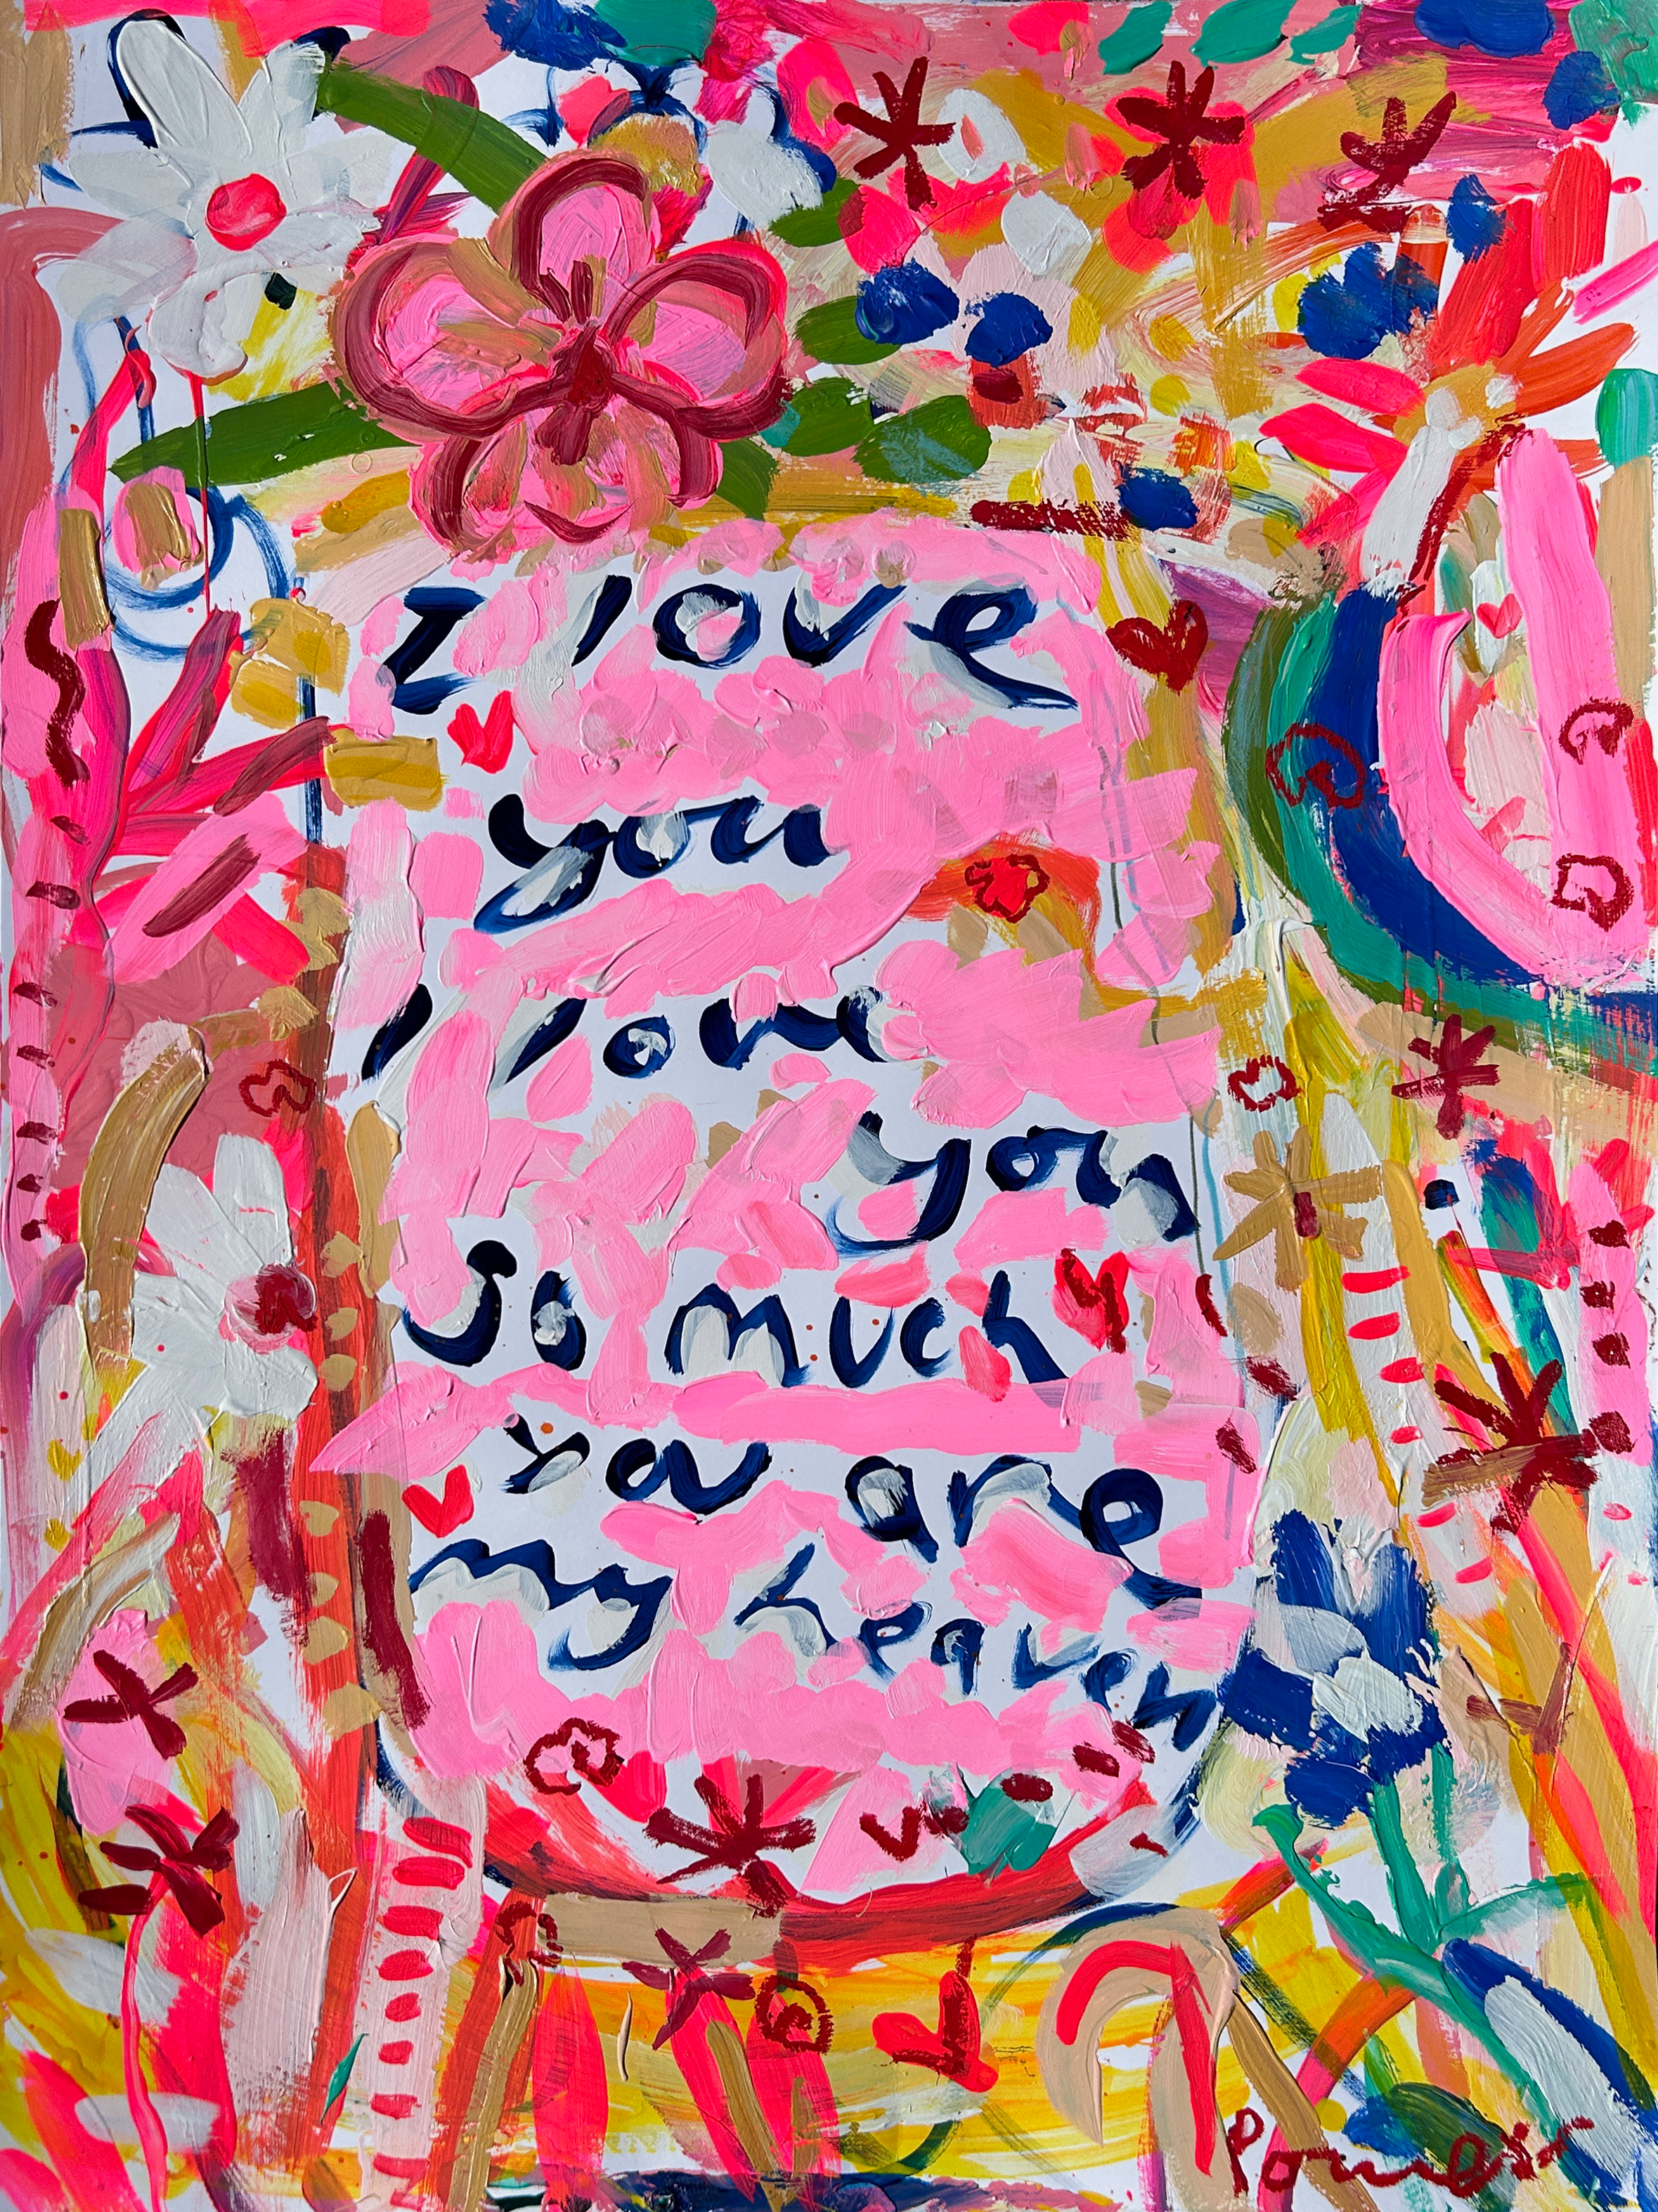 I love
you
I love
you
So much
you are
my heaven